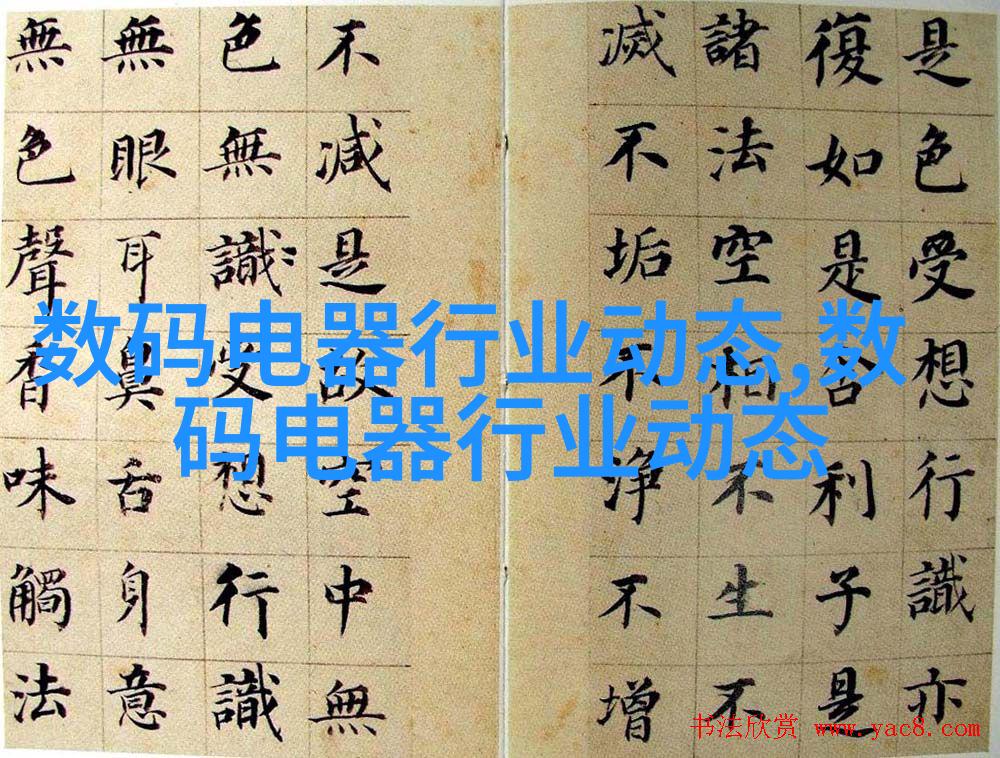 是色受想行識亦
復如是舍利子是
諸法空相不生不
滅不垢不淨不增
不減是故空中無
色無識受想行識
無眼耳鼻舌身意
無色聲香味觸法
数码电器行业动态,数
码电器行业动态
书法欣赏 www.yac8.com